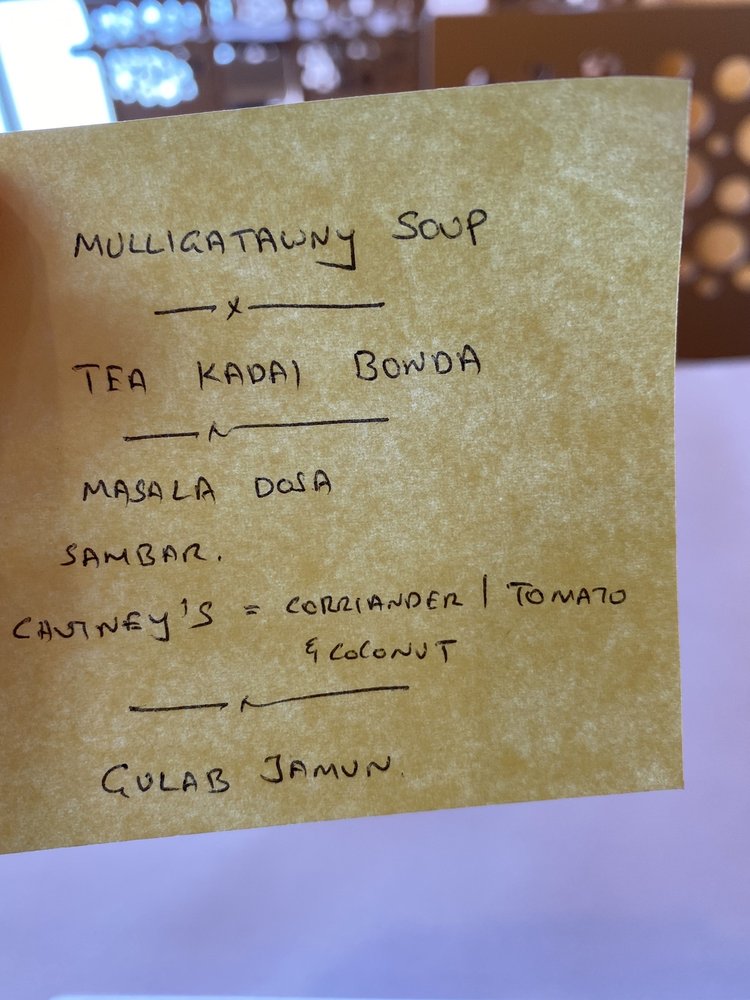 MULLIGATAWNY SOUP
TEA KADAI BONDA
MASALA DOSA
SAMBAR.
CHUTNEY'S = CORRIANDER | TOMATO
& COCONUT
GULAB JAMUN.